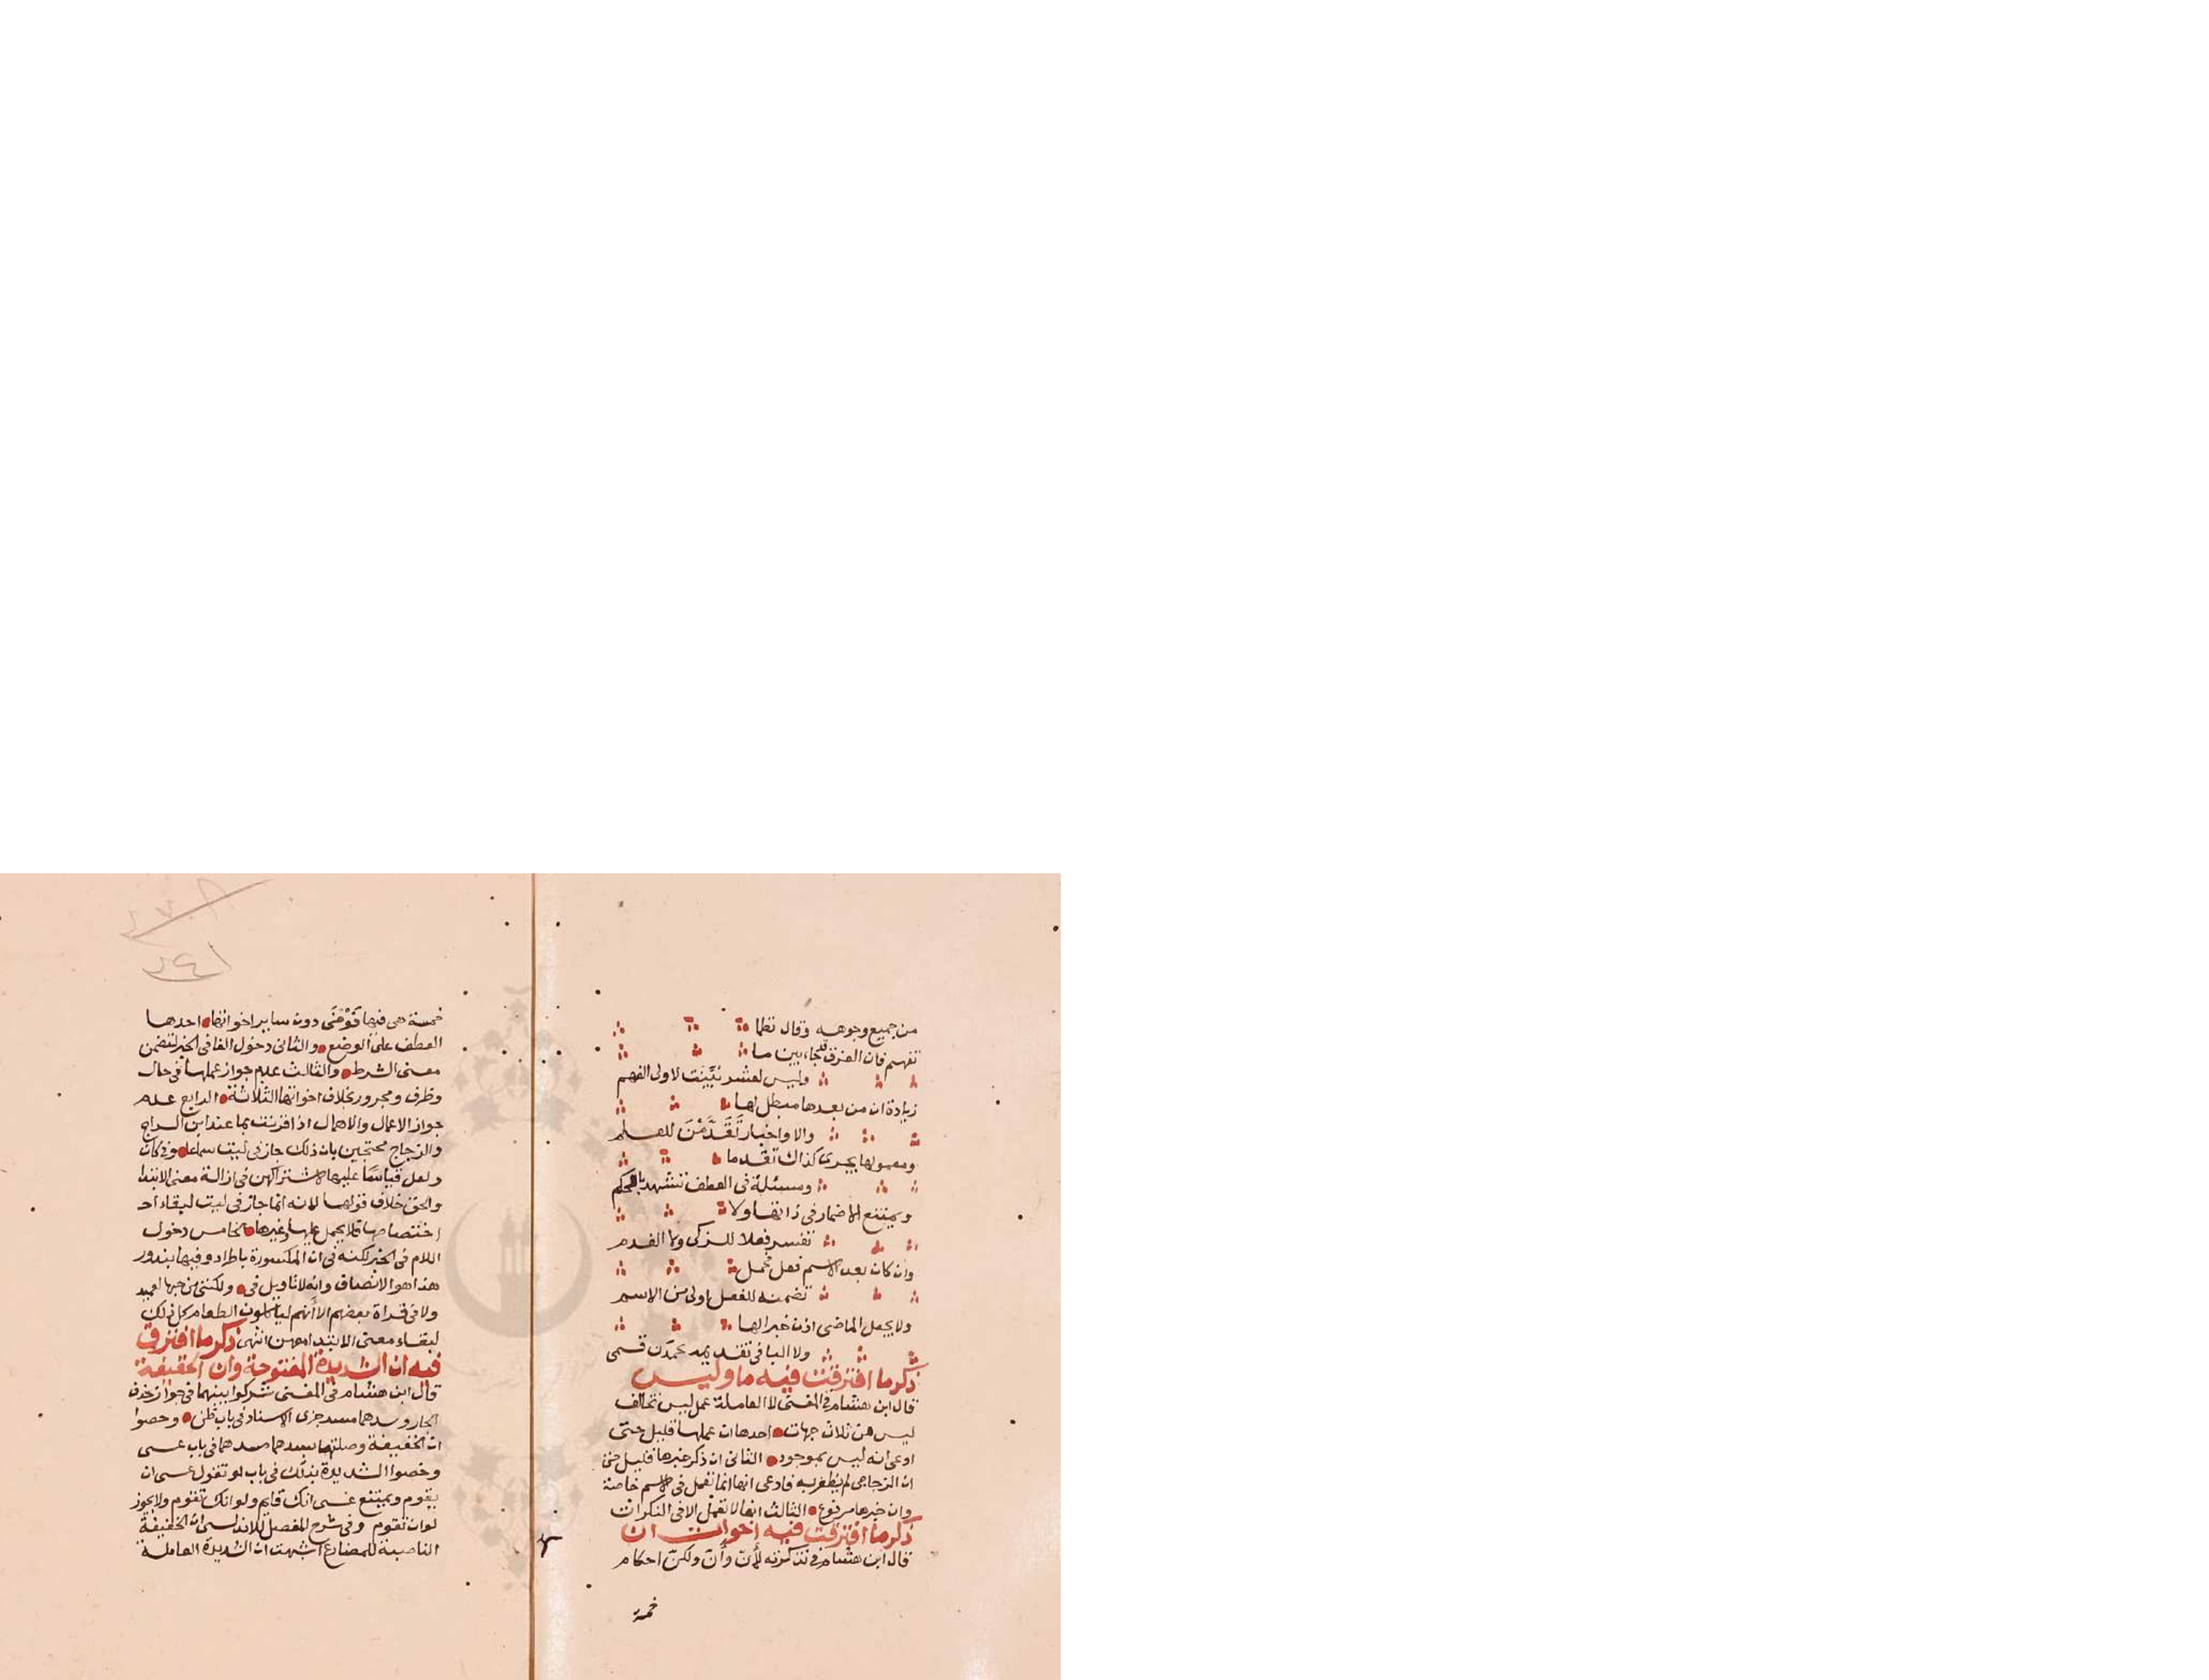 من جميع وجوهه وقال نظما
تفهم فان الفرق قد جاء بين ما
وليس لعشر بُيِّنَت لاولى الفهم
زيادة ان من بعدها مبطل لها
والا واخبار تَقَدَّمْنَ للعلم
ومعمولها يجرى كذاك تقدما
ومسئلة فى العطف تشهد بالحكم
ويمتنع الاضمار فى ذاتها ولا
تفسر فعلا للزكى ولا الفدم
وان كان بعد الاسم فعل محمل
تضمنه للفعل اولى من الاسم
ولا يجعل الماضى اذن خبرا لها
ولا البا فى تقديمه
ذكر ما افترقت فيه ما وليس
قال ابن هشام فى المغنى لا العاملة عمل ليس تخالف
ليس من ثلاث جهات احدها ان عملها قليل حتى
ادعى انه ليس بموجود الثانى ان ذكر خبرها قليل حتى
ان الزجاجى لم يظفر به فادعى انها انما تعمل فى الاسم خاصة
وان خبرها مرفوع الثالث انها لا تعمل الا فى النكرات
ذكر ما افترقت فيه اخوات ان
قال ابن هشام فى تذكرته لِأنّ وأنّ ولكنّ احكام
خمسة
خمسة هى فيها دون ساير اخواتها احدها
العطف على الوضع والثانى دخول الفا فى الخبر لتضمن
معنى الشرط والثالث عدم جواز عملها فى حال
وظرف ومجرور بخلاف اخواتها الثلاثة الرابع عدم
جواز الاعمال والاهمال اذا قرنت بما عند ابن السراج
والزجاج محتجين بان ذلك جاز فى ليت سماعا وفى كان
ولعل قياسًا عليها لاشتراكهن فى ازالة معنى الابتدا
والحق خلاف قولهما لانه انما جاز فى ليت لبقاء
اختصاصها فلا يحمل عليها غيرها الخامس دخول
اللام فى الخبر لكنه فى ان المكسورة باطراد وفيها بندور
هذا هو الانصاف وانه لا تاويل فى ولكننى من حبها لعميد
ولا فى قراة بعضهم الا أنهم لياكلون الطعام كل ذلك
لبقاء معنى الابتدا معهن انتهى ذكر ما افترق
فيه ان الشديدة المفتوحة وان الخفيفة
قال ابن هشام فى المغنى شركوا بينهما فى جواز حذف
الجار وسدهما مسد جزى الاسناد فى باب ظن وخصوا
ان الخفيفة وصلتها بسدهما مسدهما فى باب عسى
وخصوا الشديدة بذلك فى باب لو تقول عسى ان
يقوم ويمتنع عسى انك قايم ولو انك تقوم ولا يجوز
لو ان تقوم وفى شرح المفصل للاندلسى ان الخفيفة
الناصبة للمضارع اشبهت ان الشديدة العاملة